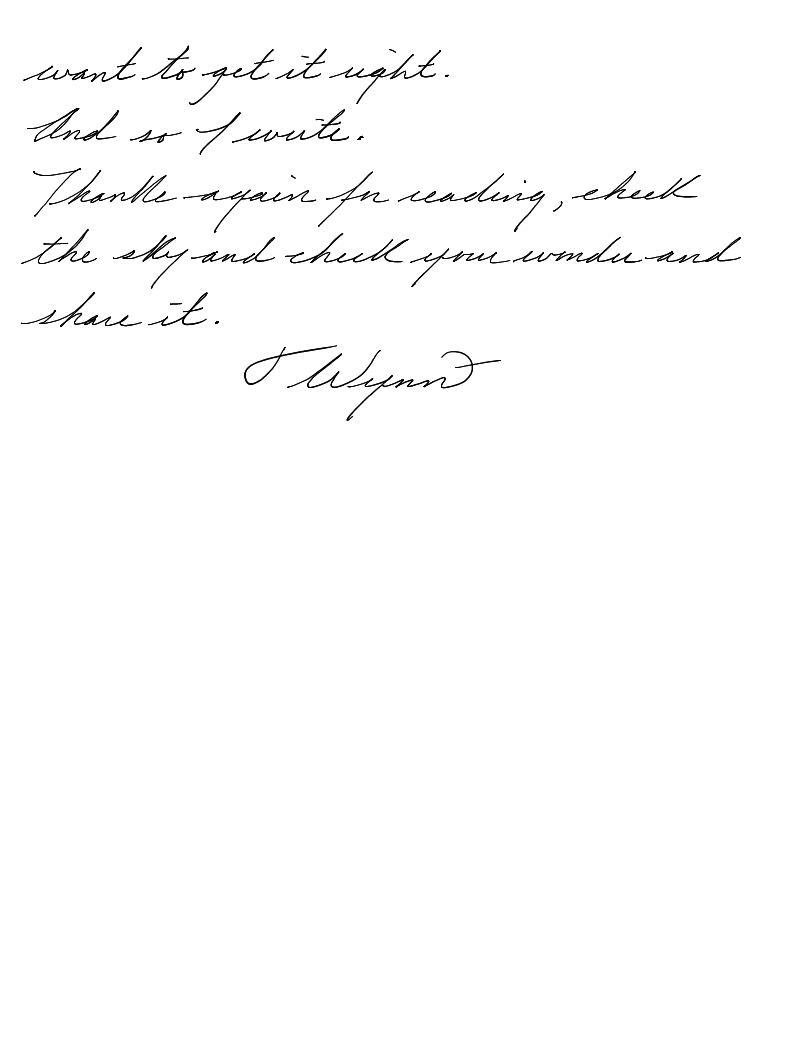 want to get it right.
And so I write.
Thanks again for reading, check
the sky and check your wonder and
share it.
J Wynn